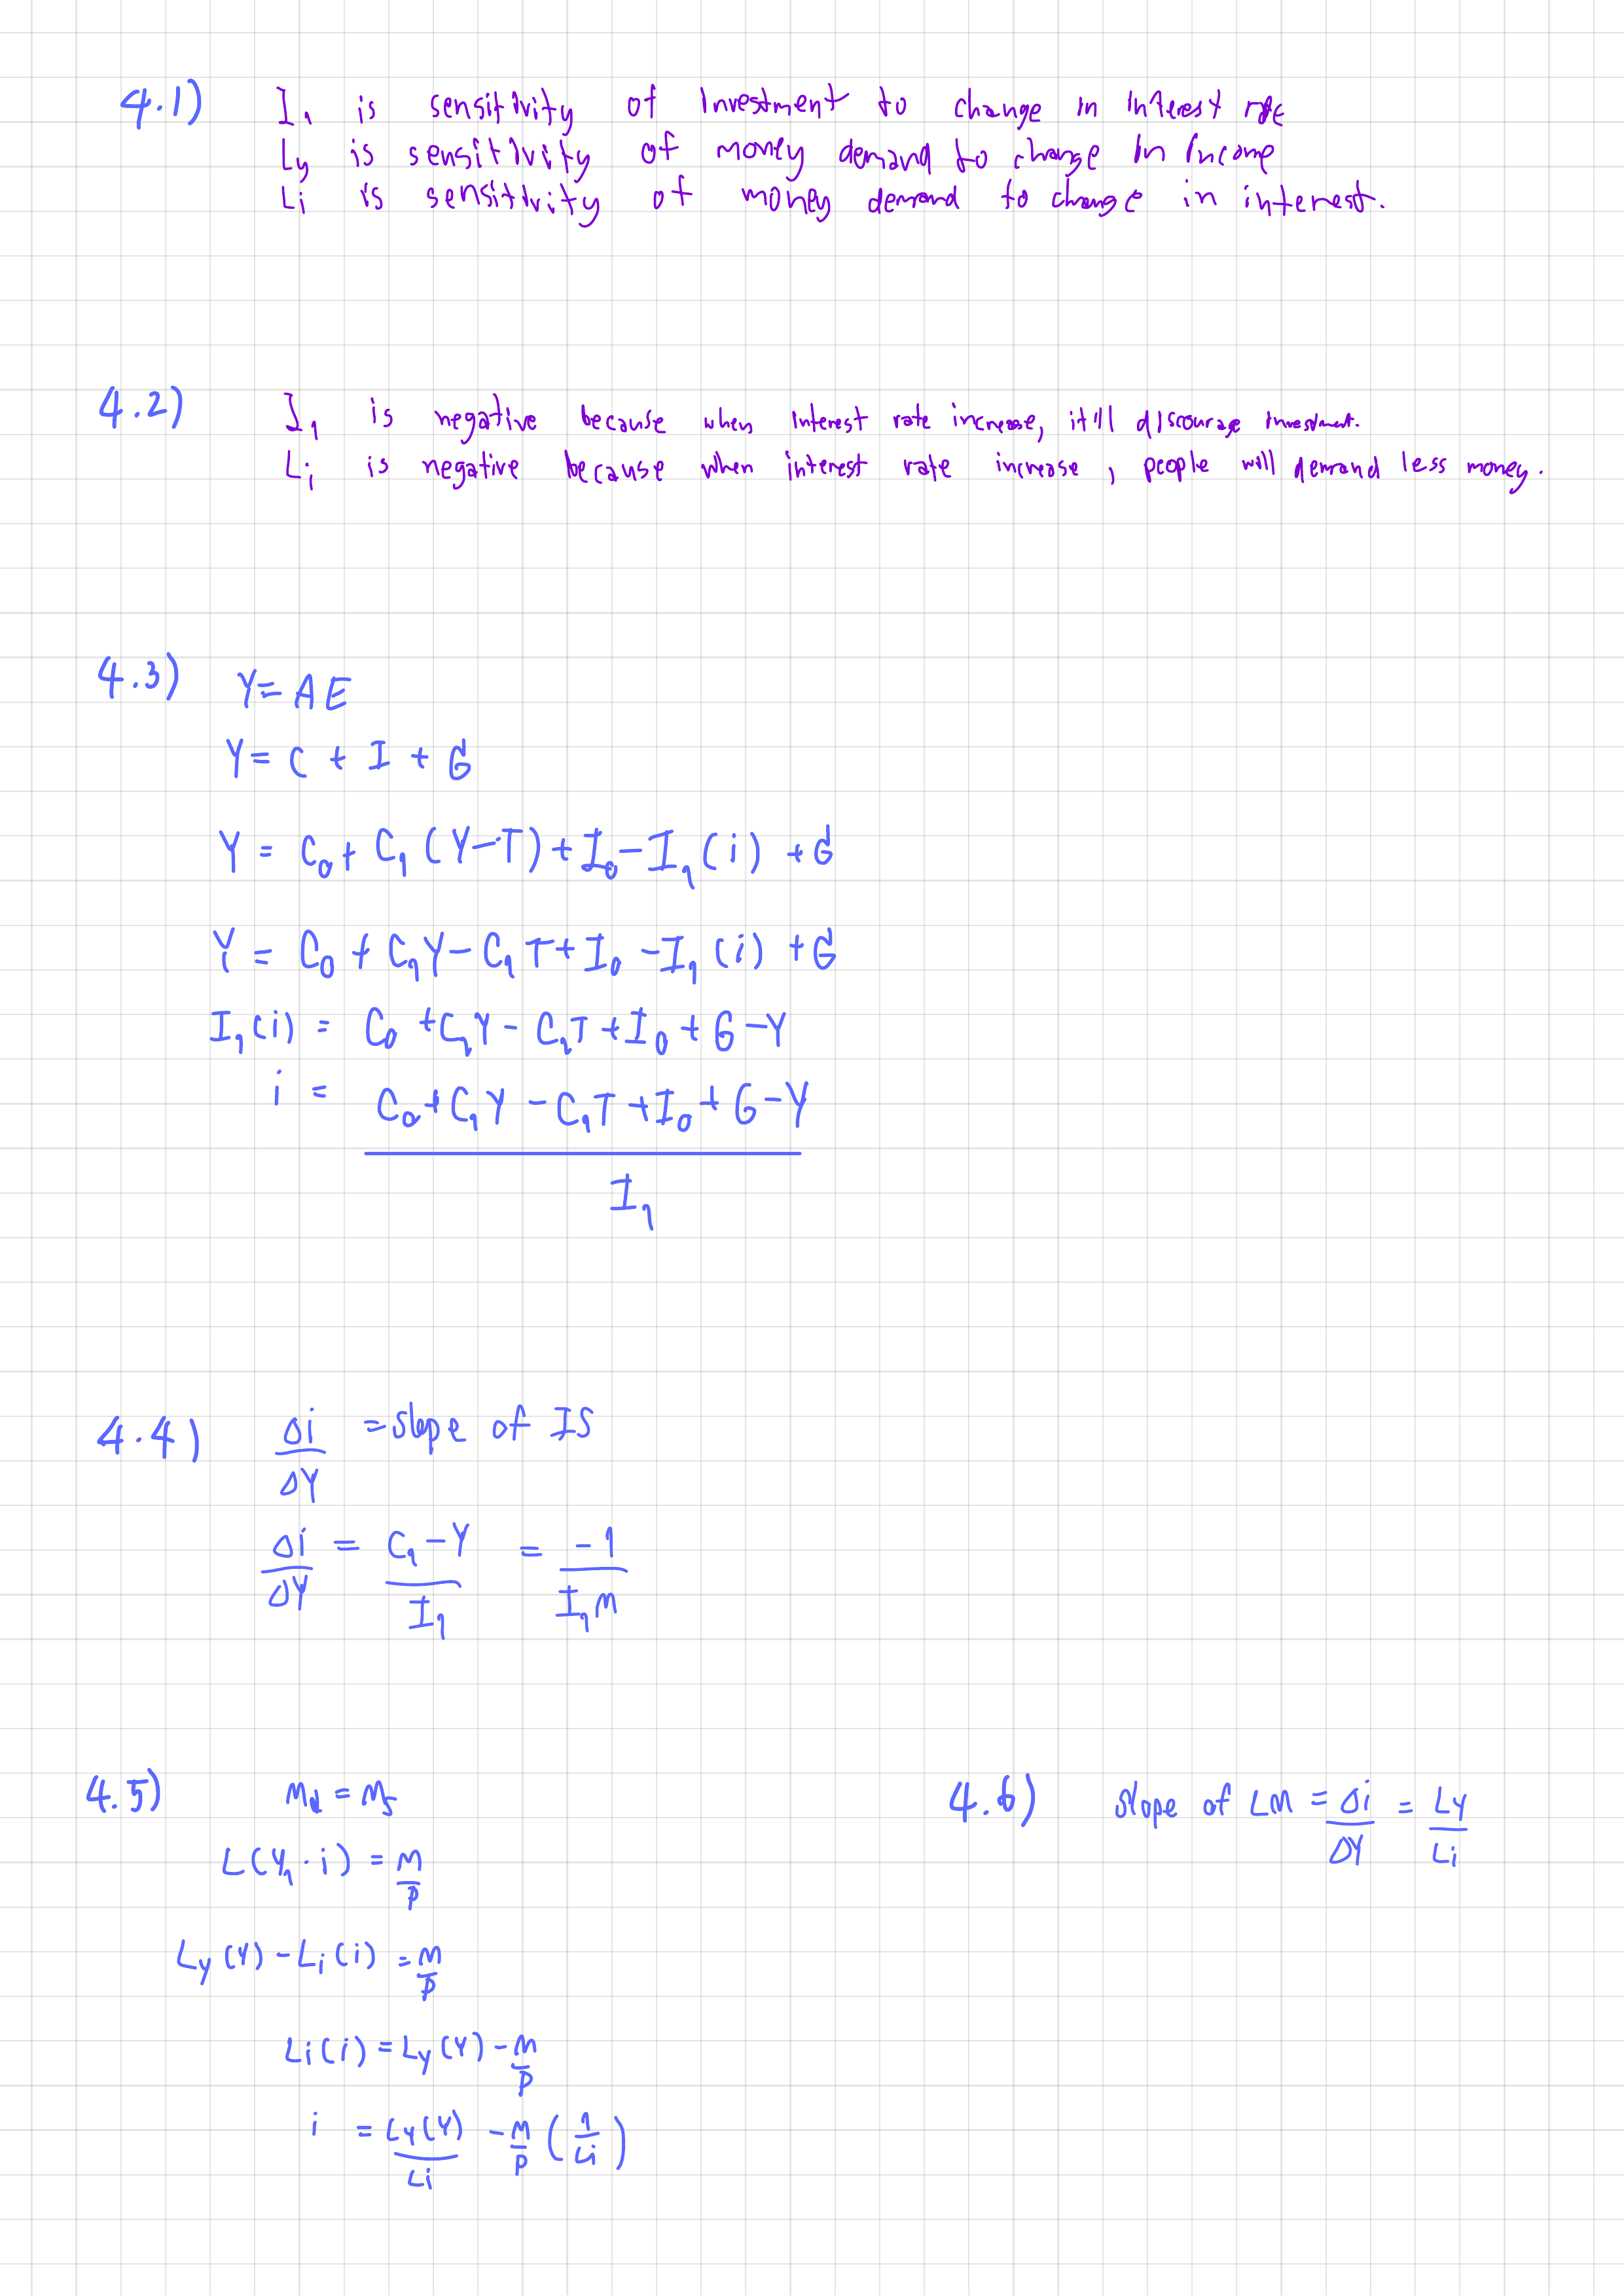 4.1) I₁ is sensitivity of investment to change in interest rate
Ly is sensitivity of money demand to change in income
Li is sensitivity of money demand to change in interest.
4.2) I₁ is negative because when interest rate increase, it'll discourage investment.
Li is negative because when interest rate increase, people will demand less money.
4.3) Y = AE
Y = C + I + G
Y = C₀ + C₁ (Y-T) + I₀ - I₁ (i) + G
Y = C₀ + C₁Y - C₁T + I₀ - I₁ (i) + G
I₁ (i) = C₀ + C₁Y - C₁T + I₀ + G - Y
i = C₀ + C₁Y - C₁T + I₀ + G - Y
I₁
4.4) Δi = slope of IS
ΔY
Δi/ΔY = C₁-Y/I₁ = -1/I₁m
4.5) Md = Ms
L(Y₁·i) = M/P
Ly (Y) - Li (i) = M/P
Li (i) = Ly (Y) - M/P
i = Ly(Y)/Li - M/P (1/Li)
4.6) slope of LM = Δi/ΔY = Ly/Li